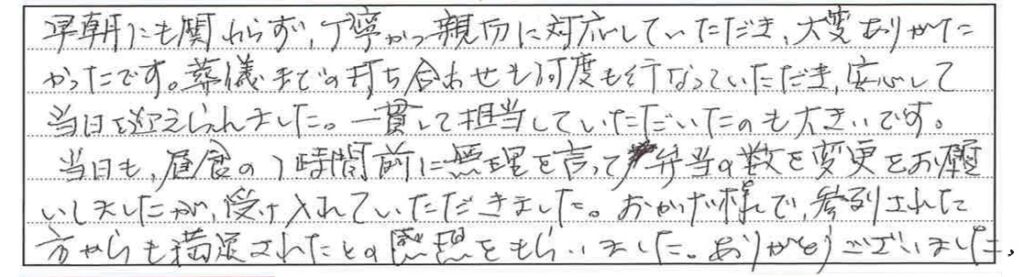 早朝にも関わらず、丁寧かつ親切に対応していただき、大変ありがた
かったです。葬儀までの打ち合わせも何度も行なっていただき、安心して
当日を迎えられました。一貫して担当していただいたのも大きいです。
当日も、昼食の1時間前に無理を言って弁当の数を変更をお願
いしましたが、受け入れていただきました。おかげ様で、参列された
方からも満足されたとの感想をもらいました。ありがとうございました。